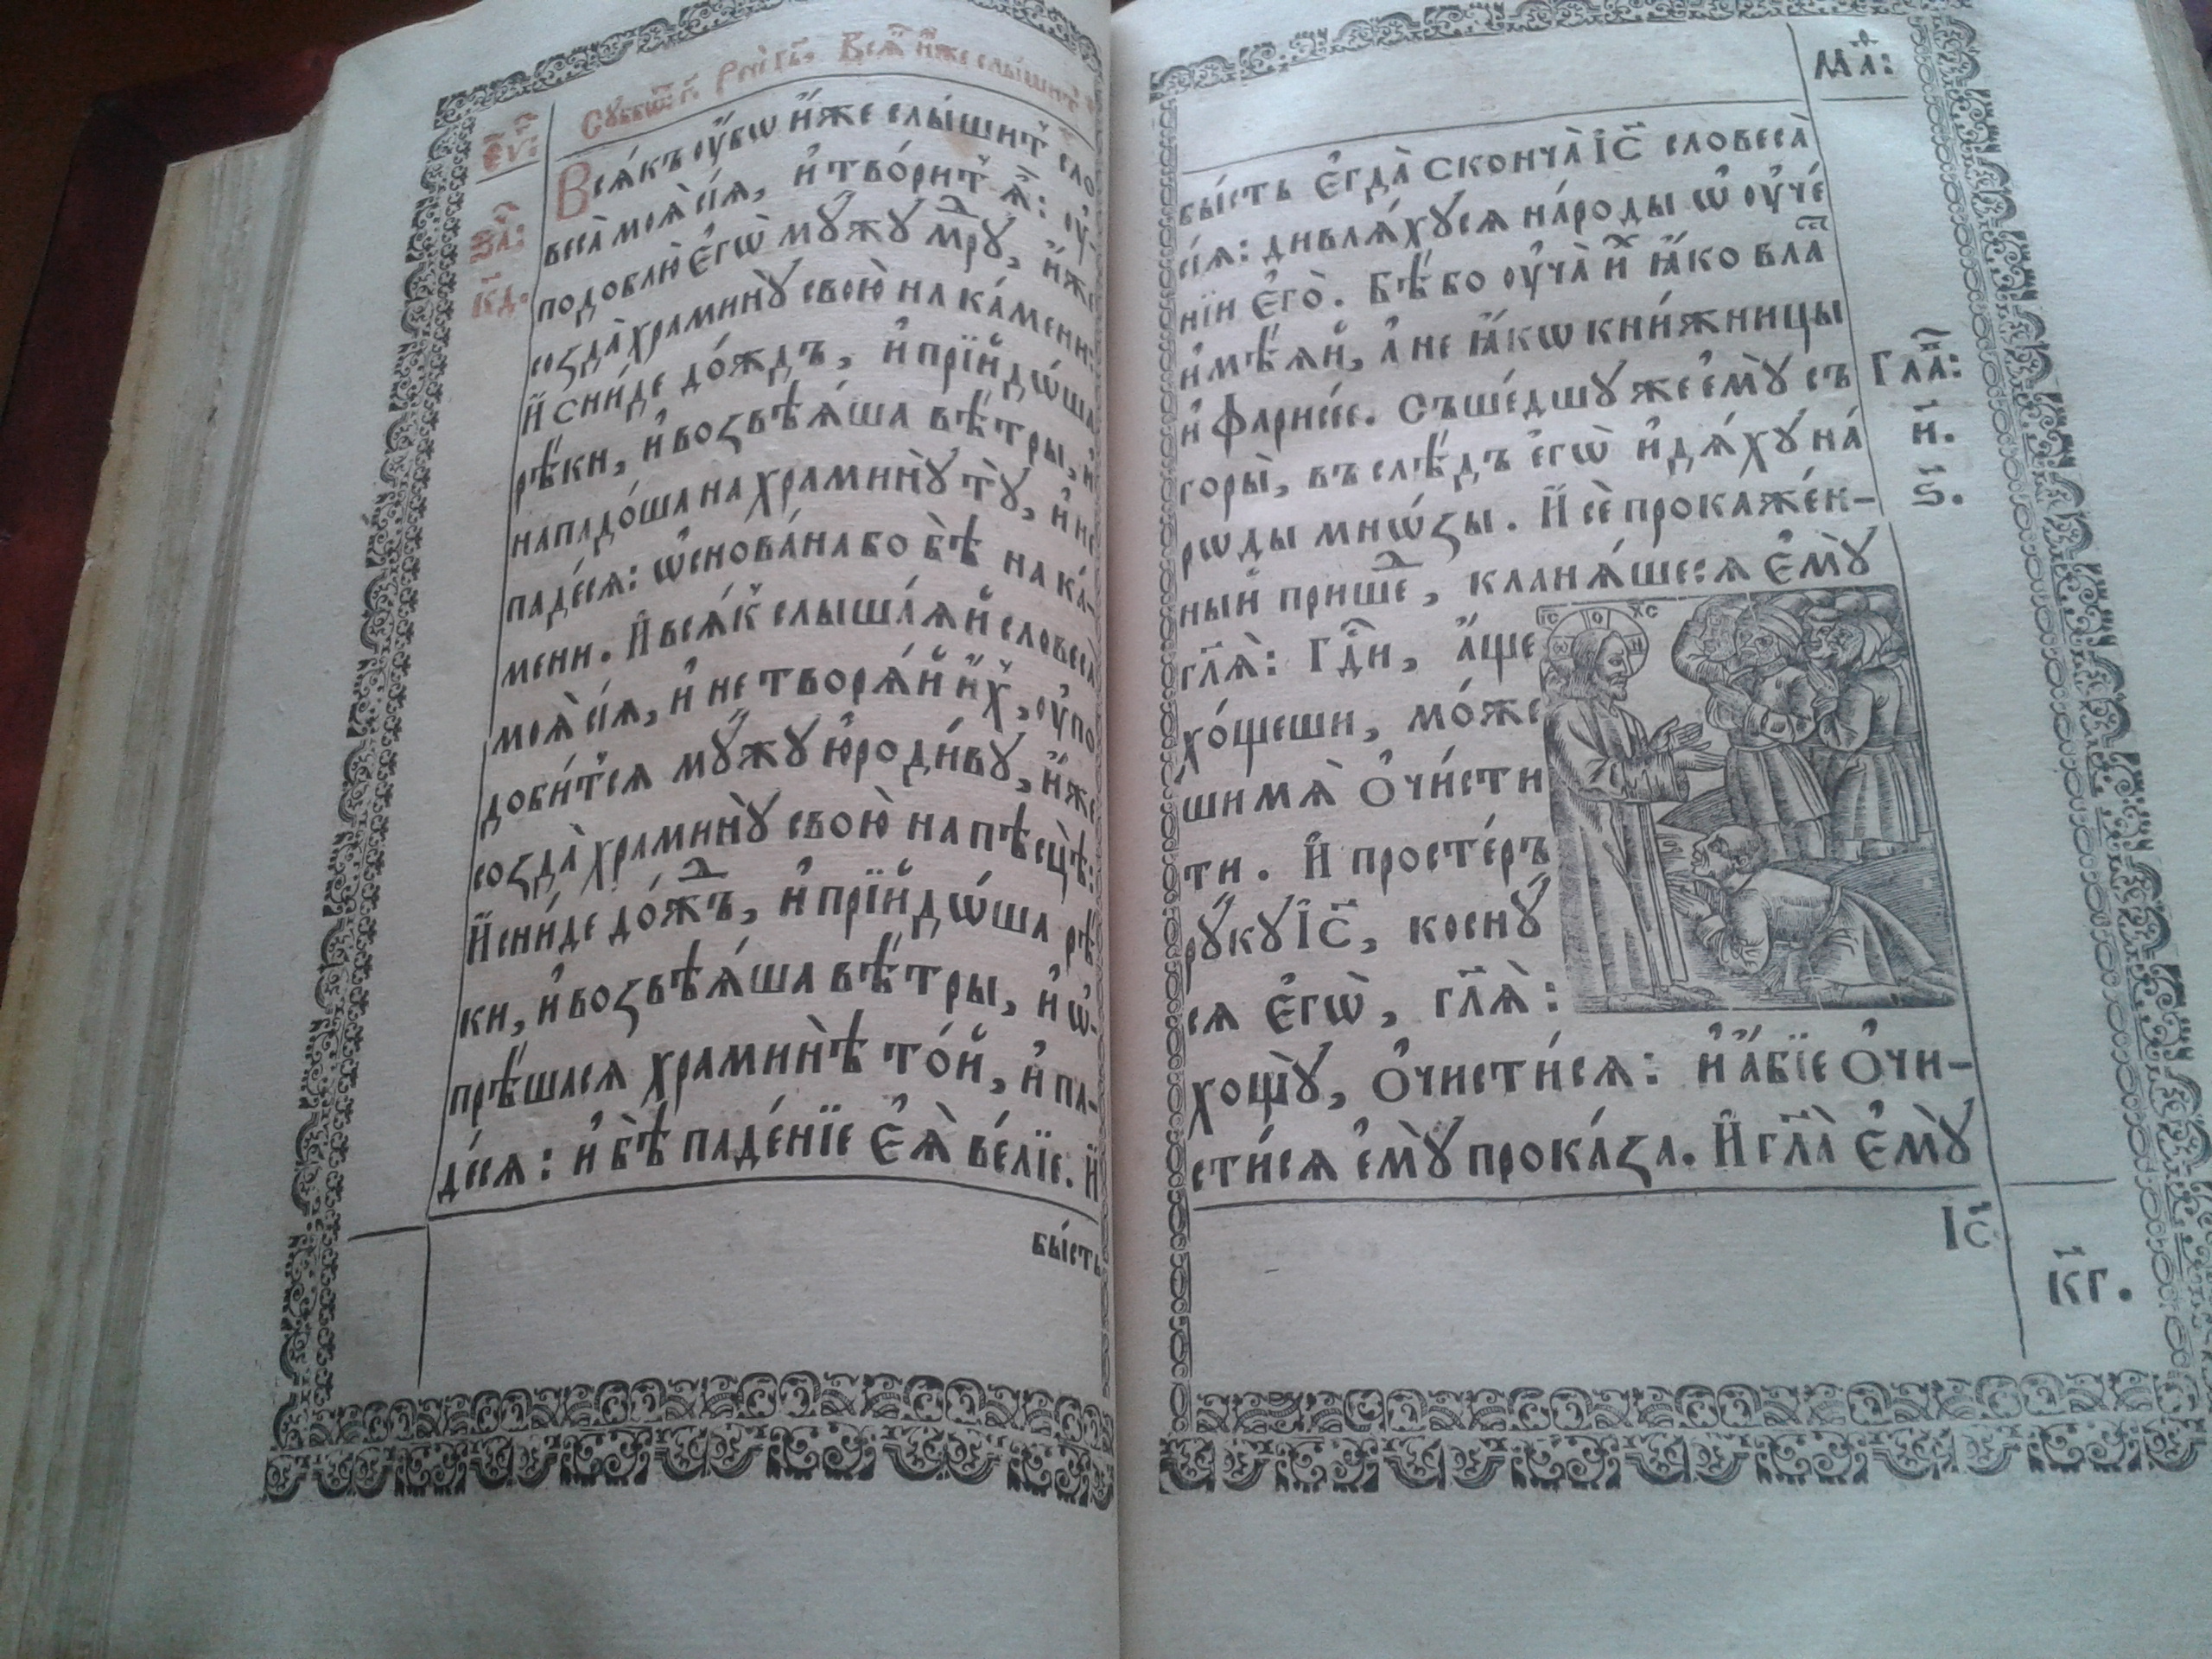 Є҆у҃:
За҃:
к҃д.
Всѧ́къ ᲂу҆́бѡ и҆́же слы́шит сло
веса̀ моѧ̀ сїѧ̑, и҆ твори́т ѧ҆̀: ᲂу҆-
подоблю̀ є҆гѡ̀ мꙋ́жꙋ мⷣрꙋ, и҆́же
созда̀ хра́минꙋ̀ свою̀ на ка́мени:
И҆ сни́де до́ждъ, и҆ прїйдѡ́ша
рѣ́ки, и҆ возвѣ́ѧша вѣ́тры, и҆
нападо́ша на хра́минꙋ̀ тꙋ̀, и҆ не
паде́сѧ: ѡ҆снова́на бо бѣ̀ на ка́-
мени. И҆ всѧ́к слы́шаѧй словеса̀
моѧ̀ сїѧ̑, и҆ не творѧ́й и҆́х, ᲂу҆по
доби́тсѧ мꙋ́жꙋ ю҆ро́дивꙋ, и҆́же
созда̀ хра́минꙋ̀ свою̀ на пѣсцѣ̀:
И҆ сни́де до́жⷣъ, и҆ прїйдѡ́ша рѣ́
ки, и҆ возвѣ́ѧша вѣ́тры, и҆ ѡ҆-
прѣ́шасѧ хра́минѣ̀ то́й, и҆ па-
де́сѧ: и҆ бѣ̀ паде́нїе є҆ѧ̀ ве́лїе. И҆
бы́сть
Ма:
бы́сть є҆гда̀ сконча̀ І҆с҃ словеса̀
сїѧ̑: дивлѧ́хꙋсѧ наро́ды ѡ҆ ᲂу҆че́
нїи є҆го̀. Бѣ́ бо ᲂу҆ча̀ и҆ⷯ ꙗ҆́ко влаⷭ
и҆мѣ́ѧй, а҆ не ꙗ҆́кѡ кни́жницы
и҆ фарисе́е. Съше́дшꙋ же є҆мꙋ̀ съ
горы̀, въ слѣ́дъ є҆гѡ̀ и҆дѧ́хꙋ на́
рѡды мнѡ́зы. И҆ сѐ прокаже́н-
ный прише́ⷣ, кла́нѧшесѧ є҆мꙋ̀
гл҃ѧ: Гⷭ҇ди, а҆́ще
хо́щеши, мо́же
ши мѧ̀ ѻ҆чи́сти
ти. И҆ просте́ръ
рꙋ́кꙋ І҆с҃, коснꙋ́
сѧ є҆гѡ̀, гл҃ѧ:
хощꙋ̀, ѻ҆чисти́сѧ: и҆ а҆́бїе ѻ҆чи-
сти́сѧ є҆мꙋ̀ прока́за. И҆ гл҃а є҆мꙋ̀
Глаⷡ:
и҃.
ѕ҃.
ІС ХС
Ѡ О Н
І҆с҃
к҃г.